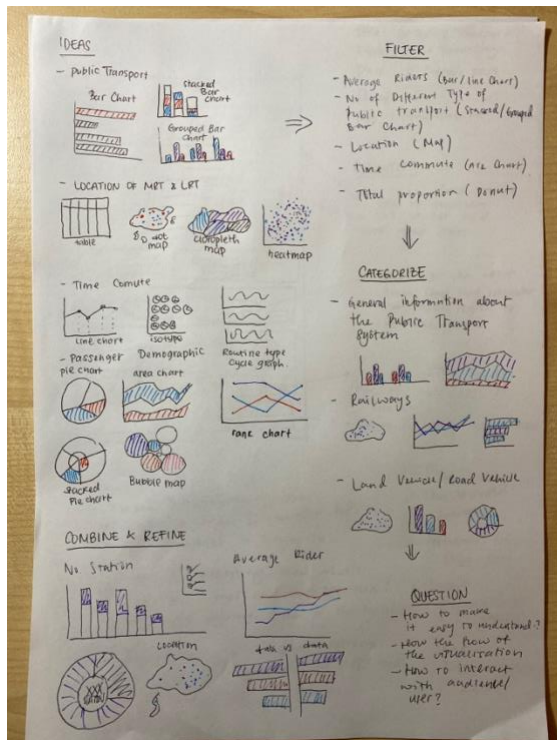 IDEAS
- Public Transport
Bar Chart
Stacked
Bar
Chart
Grouped Bar
Chart
- LOCATION OF MRT & LRT
table
Dot
map
cloropleth
map
heatmap
- Time Comute
line chart
isotype
Routine type
Cycle graph.
- Passenger Demographic
pie chart
area chart
range chart
stacked
Pie chart
Bubble map
COMBINE & REFINE
No. Station
Average Rider
LOCATION
data vs data
FILTER
- Average Riders (Bar/line Chart)
- No of Different Type of
Public transport (Stacked/Grouped
Bar Chart)
- Location (Map)
- Time commute (Are Chart)
- Total proportion (Donut)
CATEGORIZE
- General information about
the Public Transport
System
- Railways
- Land Vehicle/Road Vehicle
QUESTION
- How to make
it easy to understand?
- How the flow of
the visualization
- How to interact
with audience/
user?